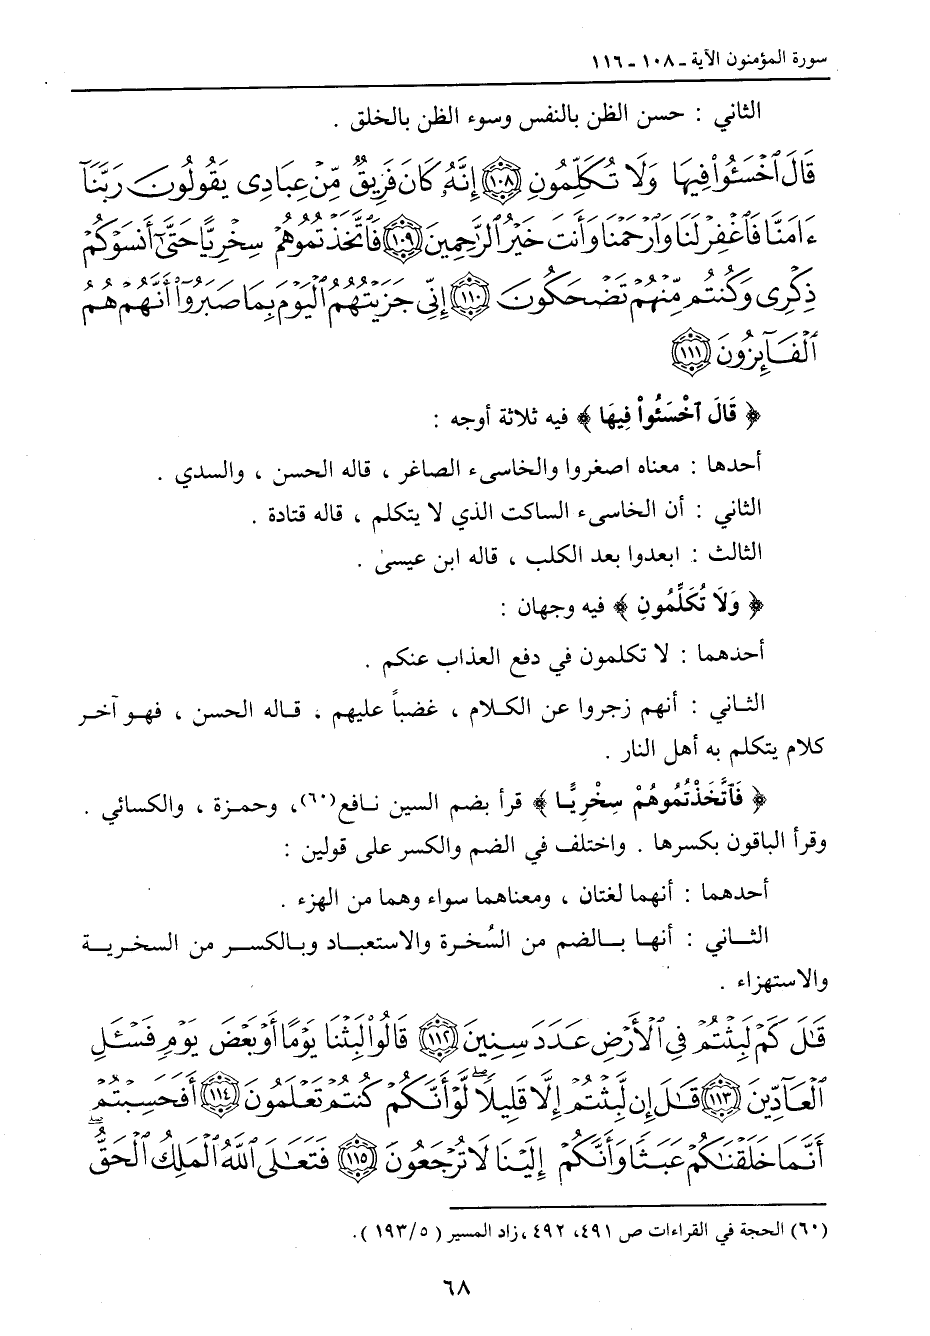 سورة المؤمنون الآية ـ ١٠٨ ـ ١١٦
الثاني : حسن الظن بالنفس وسوء الظن بالخلق .
قَالَ ٱخْسَـُٔوا۟ فِيهَا وَلَا تُكَلِّمُونِ ١٠٨ إِنَّهُۥ كَانَ فَرِيقٌ مِّنْ عِبَادِى يَقُولُونَ رَبَّنَآ
ءَامَنَّا فَٱغْفِرْ لَنَا وَٱرْحَمْنَا وَأَنتَ خَيْرُ ٱلرَّٰحِمِينَ ١٠٩ فَٱتَّخَذْتُمُوهُمْ سِخْرِيًّا حَتَّىٰٓ أَنسَوْكُمْ
ذِكْرِى وَكُنتُم مِّنْهُمْ تَضْحَكُونَ ١١٠ إِنِّى جَزَيْتُهُمُ ٱلْيَوْمَ بِمَا صَبَرُوٓا۟ أَنَّهُمْ هُمُ
ٱلْفَآئِزُونَ ١١١
﴿ قَالَ ٱخْسَئُوا۟ فِيهَا ﴾ فيه ثلاثة أوجه :
أحدها : معناه اصغروا والخاسىء الصاغر ، قاله الحسن ، والسدي .
الثاني : أن الخاسىء الساكت الذي لا يتكلم ، قاله قتادة .
الثالث : ابعدوا بعد الكلب ، قاله ابن عيسىٰ .
﴿ وَلَا تُكَلِّمُونِ ﴾ فيه وجهان :
أحدهما : لا تكلمون في دفع العذاب عنكم .
الثاني : أنهم زجروا عن الكلام ، غضباً عليهم . قاله الحسن ، فهو آخر
كلام يتكلم به أهل النار .
﴿ فَٱتَّخَذْتُمُوهُمْ سِخْرِيًّا ﴾ قرأ بضم السين نافع(٦٠)، وحمزة ، والكسائي .
وقرأ الباقون بكسرها . واختلف في الضم والكسر على قولين :
أحدهما : أنهما لغتان ، ومعناهما سواء وهما من الهزء .
الثاني : أنها بالضم من السُخرة والاستعباد وبالكسر من السخرية
والاستهزاء .
قَٰلَ كَمْ لَبِثْتُمْ فِى ٱلْأَرْضِ عَدَدَ سِنِينَ ١١٢ قَالُوا۟ لَبِثْنَا يَوْمًا أَوْ بَعْضَ يَوْمٍ فَسْـَٔلِ
ٱلْعَآدِّينَ ١١٣ قَٰلَ إِن لَّبِثْتُمْ إِلَّا قَلِيلًا ۖ لَّوْ أَنَّكُمْ كُنتُمْ تَعْلَمُونَ ١١٤ أَفَحَسِبْتُمْ
أَنَّمَا خَلَقْنَٰكُمْ عَبَثًا وَأَنَّكُمْ إِلَيْنَا لَا تُرْجَعُونَ ١١٥ فَتَعَٰلَى ٱللَّهُ ٱلْمَلِكُ ٱلْحَقُّ ۖ
(٦٠) الحجة في القراءات ص ٤٩١، ٤٩٢ ، زاد المسير ( ٥/ ١٩٣ ).
٦٨